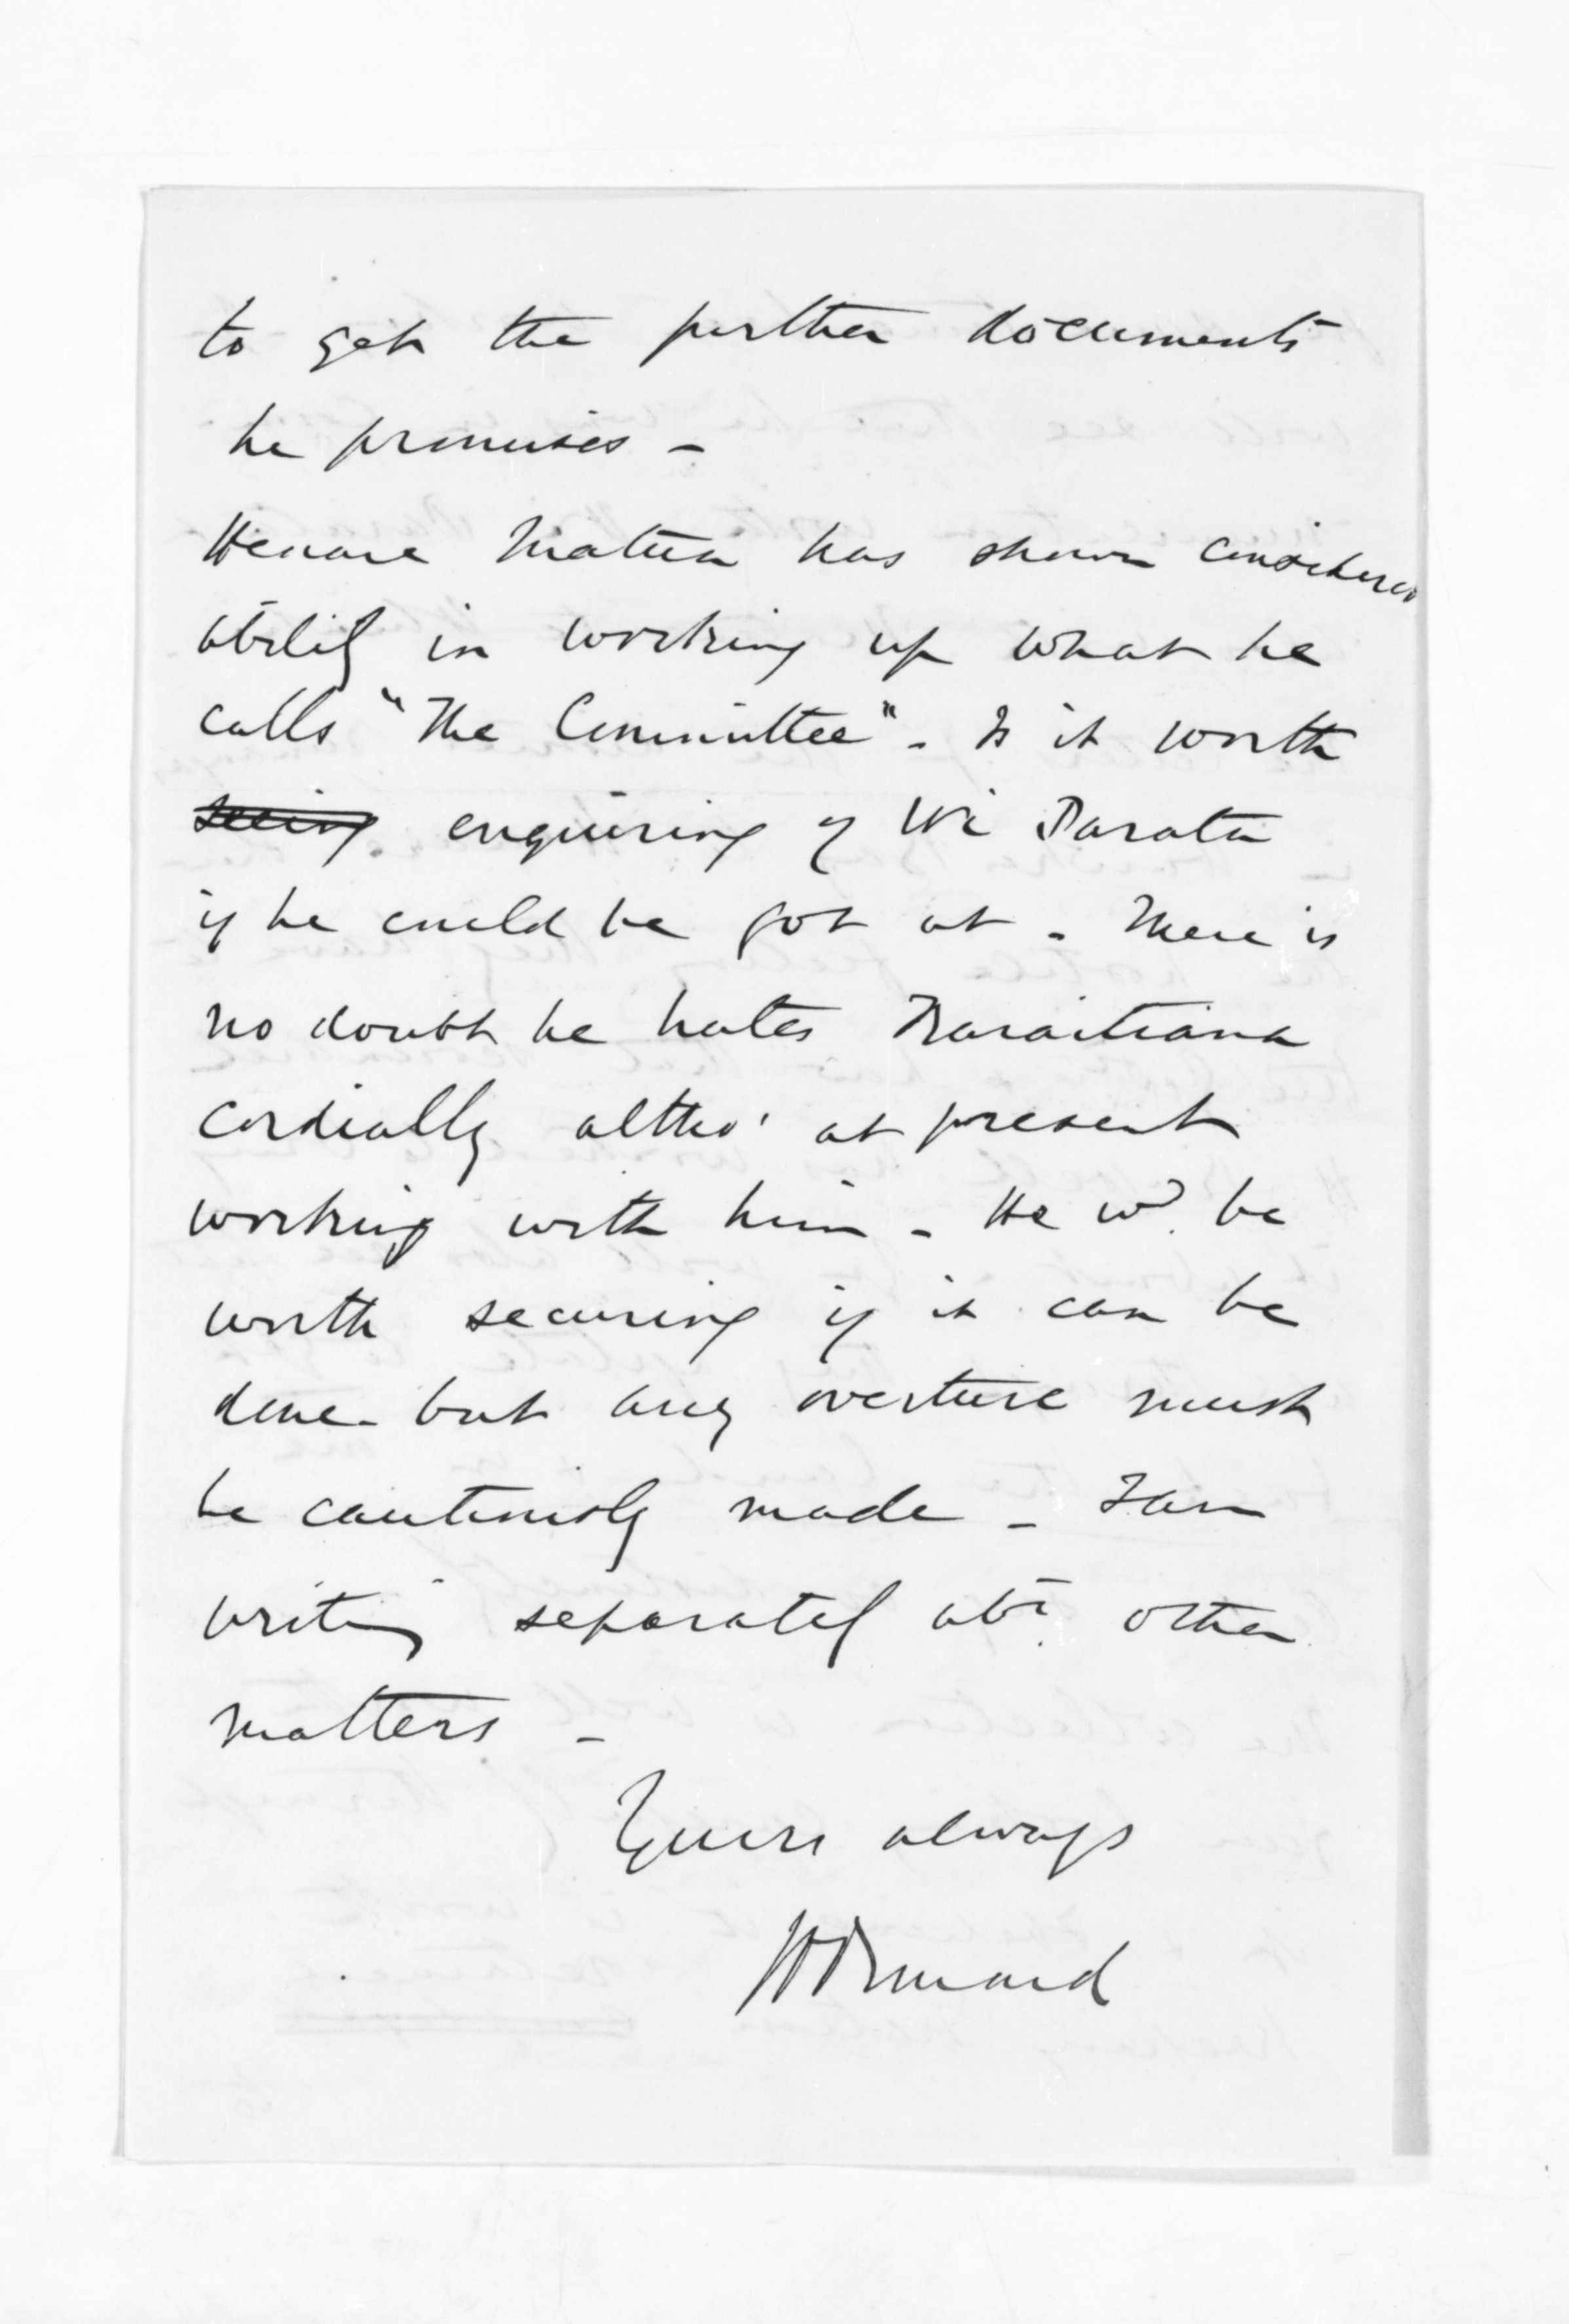 to get the further documents
he promises -
Henare Matua has shown considerable
ability in working up what he
calls "The Committee" - Is it worth
seeing enquiring of Wi Parata
if he could be got at - There is
no doubt he hates Karaitiana
cordially altho' at present
working with him - He wd. be
worth securing if it can be
done - but any overture must
be cautiously made - I am
writing separately abt. other
matters -
Yours always
JD Ormond